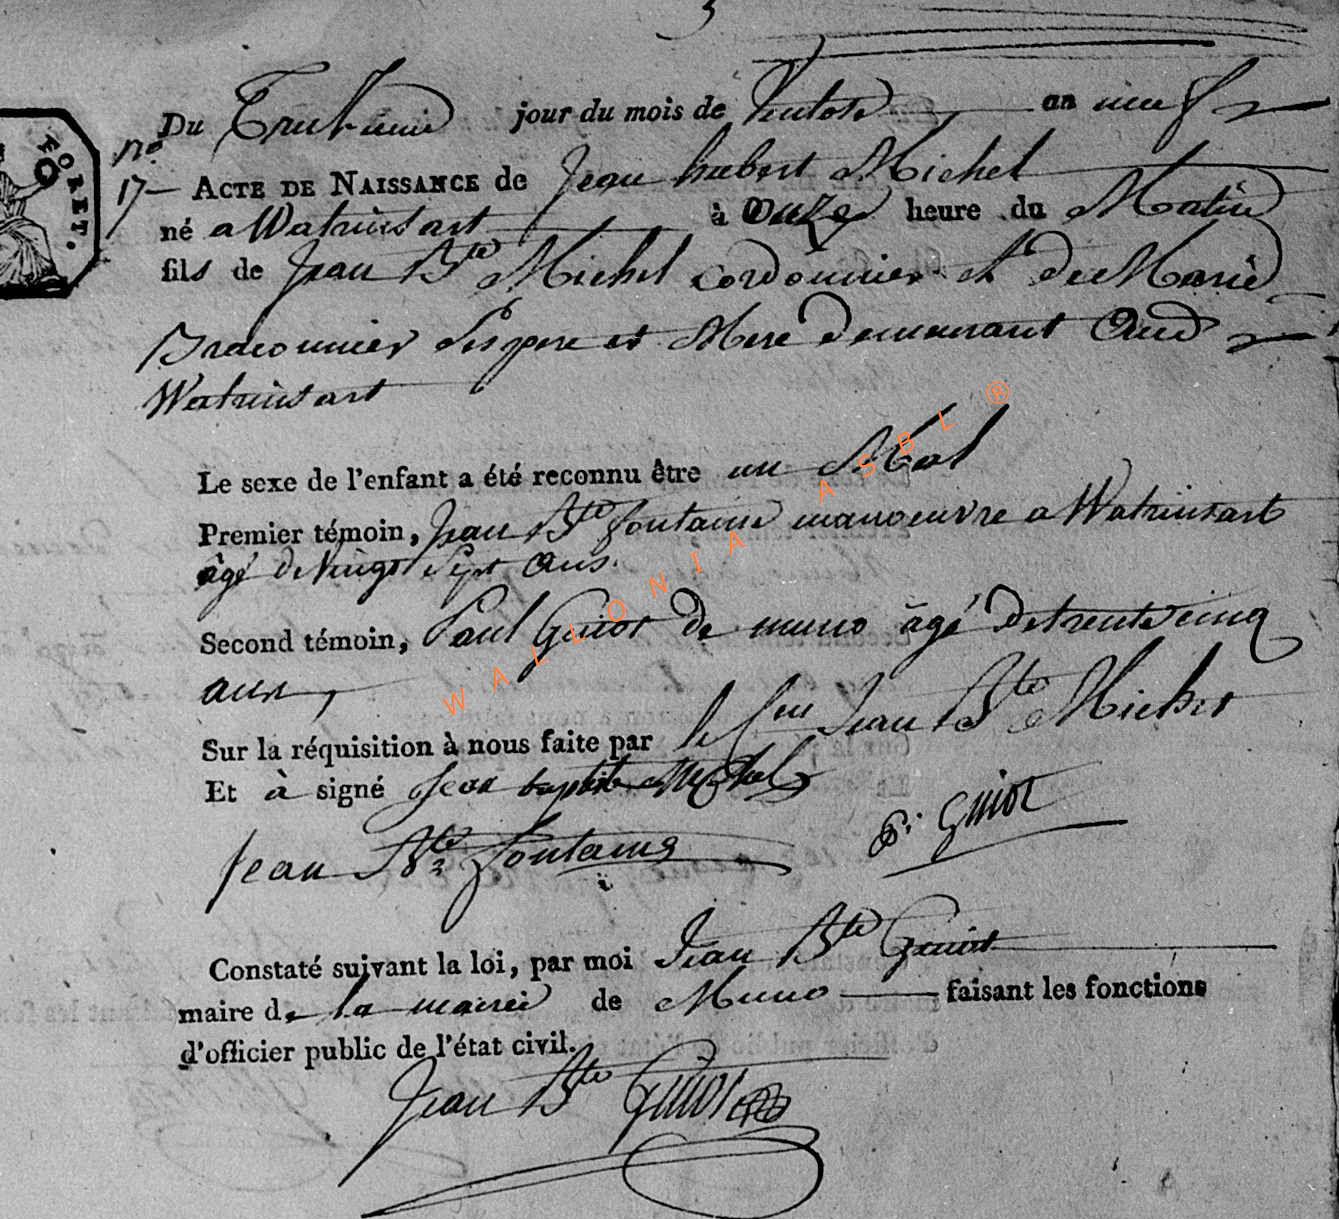 3
Du Trentieme jour du mois de Ventose an neuf
No
17 ACTE DE NAISSANCE de Jean hubert Michel
né a Watrinsart à Onze heure du Matin
fils de Jean Bte Michel cordonnier et de Marie
Braconnier Ses pere et Mere demeurant Aud
Watrinsart
Le sexe de l'enfant a été reconnu être un Mal
Premier témoin, Jean Bte fontaine manoeuvre a Watrinsart
âgé de Vingt Sept Ans.
Second témoin, Paul Guiot de muno âgé De trente cinq
ans,
Sur la réquisition à nous faite par le Jean Bte Michel
Et à signé Jean baptiste Michel
Jean Bte fontaine P. Guiot
Constaté suivant la loi, par moi Jean Bte Guiot
maire de la mairie de Muno faisant les fonctions
d'officier public de l'état civil.
Jean Bte Guiot
FORET.
WALLONIA ASBL ®